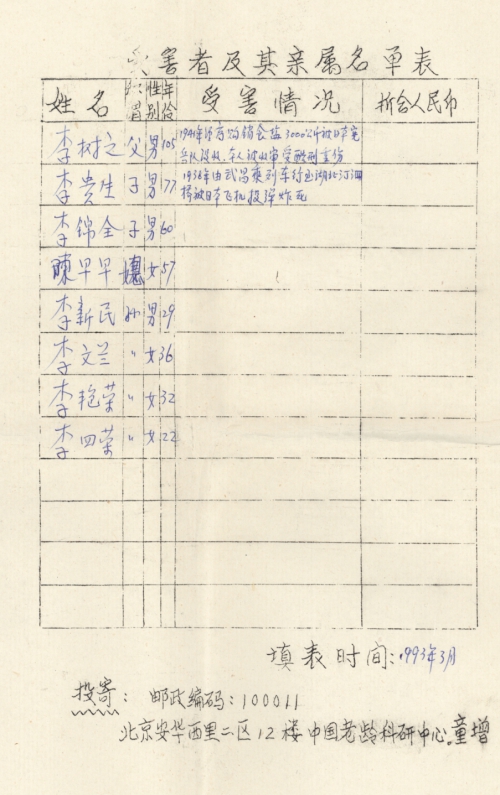 受害者及其亲属名单表
姓名 性别 年令 受害情况 折合人民币
李树之 父 男 105 1941年 购销食盐3000公斤被日本宪
兵队没收、本人被收审受酷刑重伤
李贵生 子 男 77 1938年由武昌乘列车 湖北
桥被日本飞机投弹炸死
李锦全 子 男 60
陳早早 媳 女 57
李新民 孙 男 29
李文兰 〃 女 36
李艳荣 〃 女 32
李四荣 〃 女 22
填表时间:1993年3月
投寄:邮政编码:100011
北京安华西里二区12楼中国老龄科研中心。童增